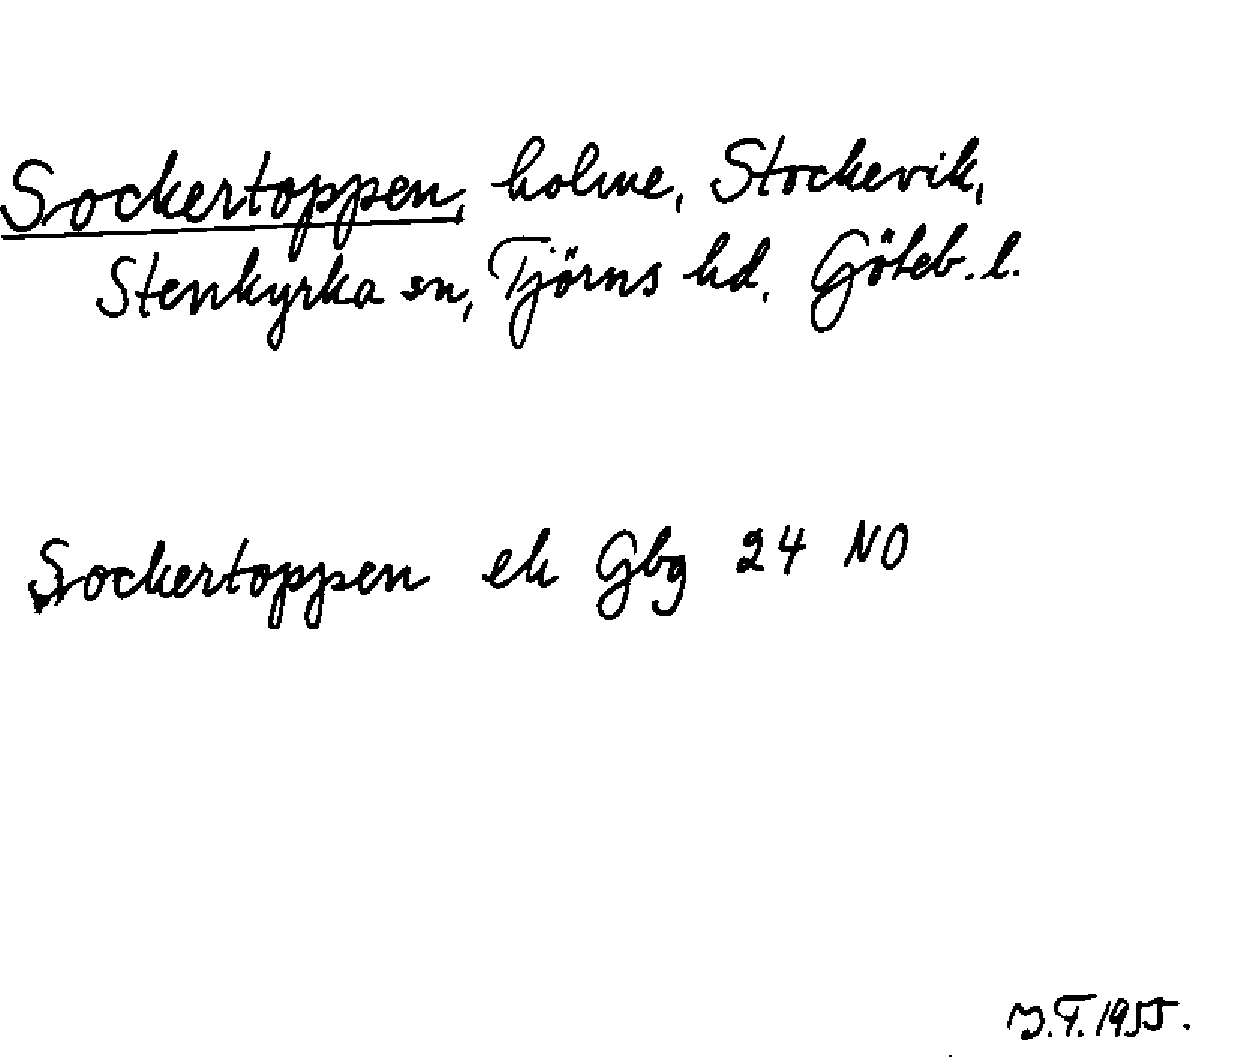 Sockertoppen, holme, Stockevik,
Stenkyrka sn, Tjörns hd, Göteb. l.
Sockertoppen ek Gbg 24 NO
1955.